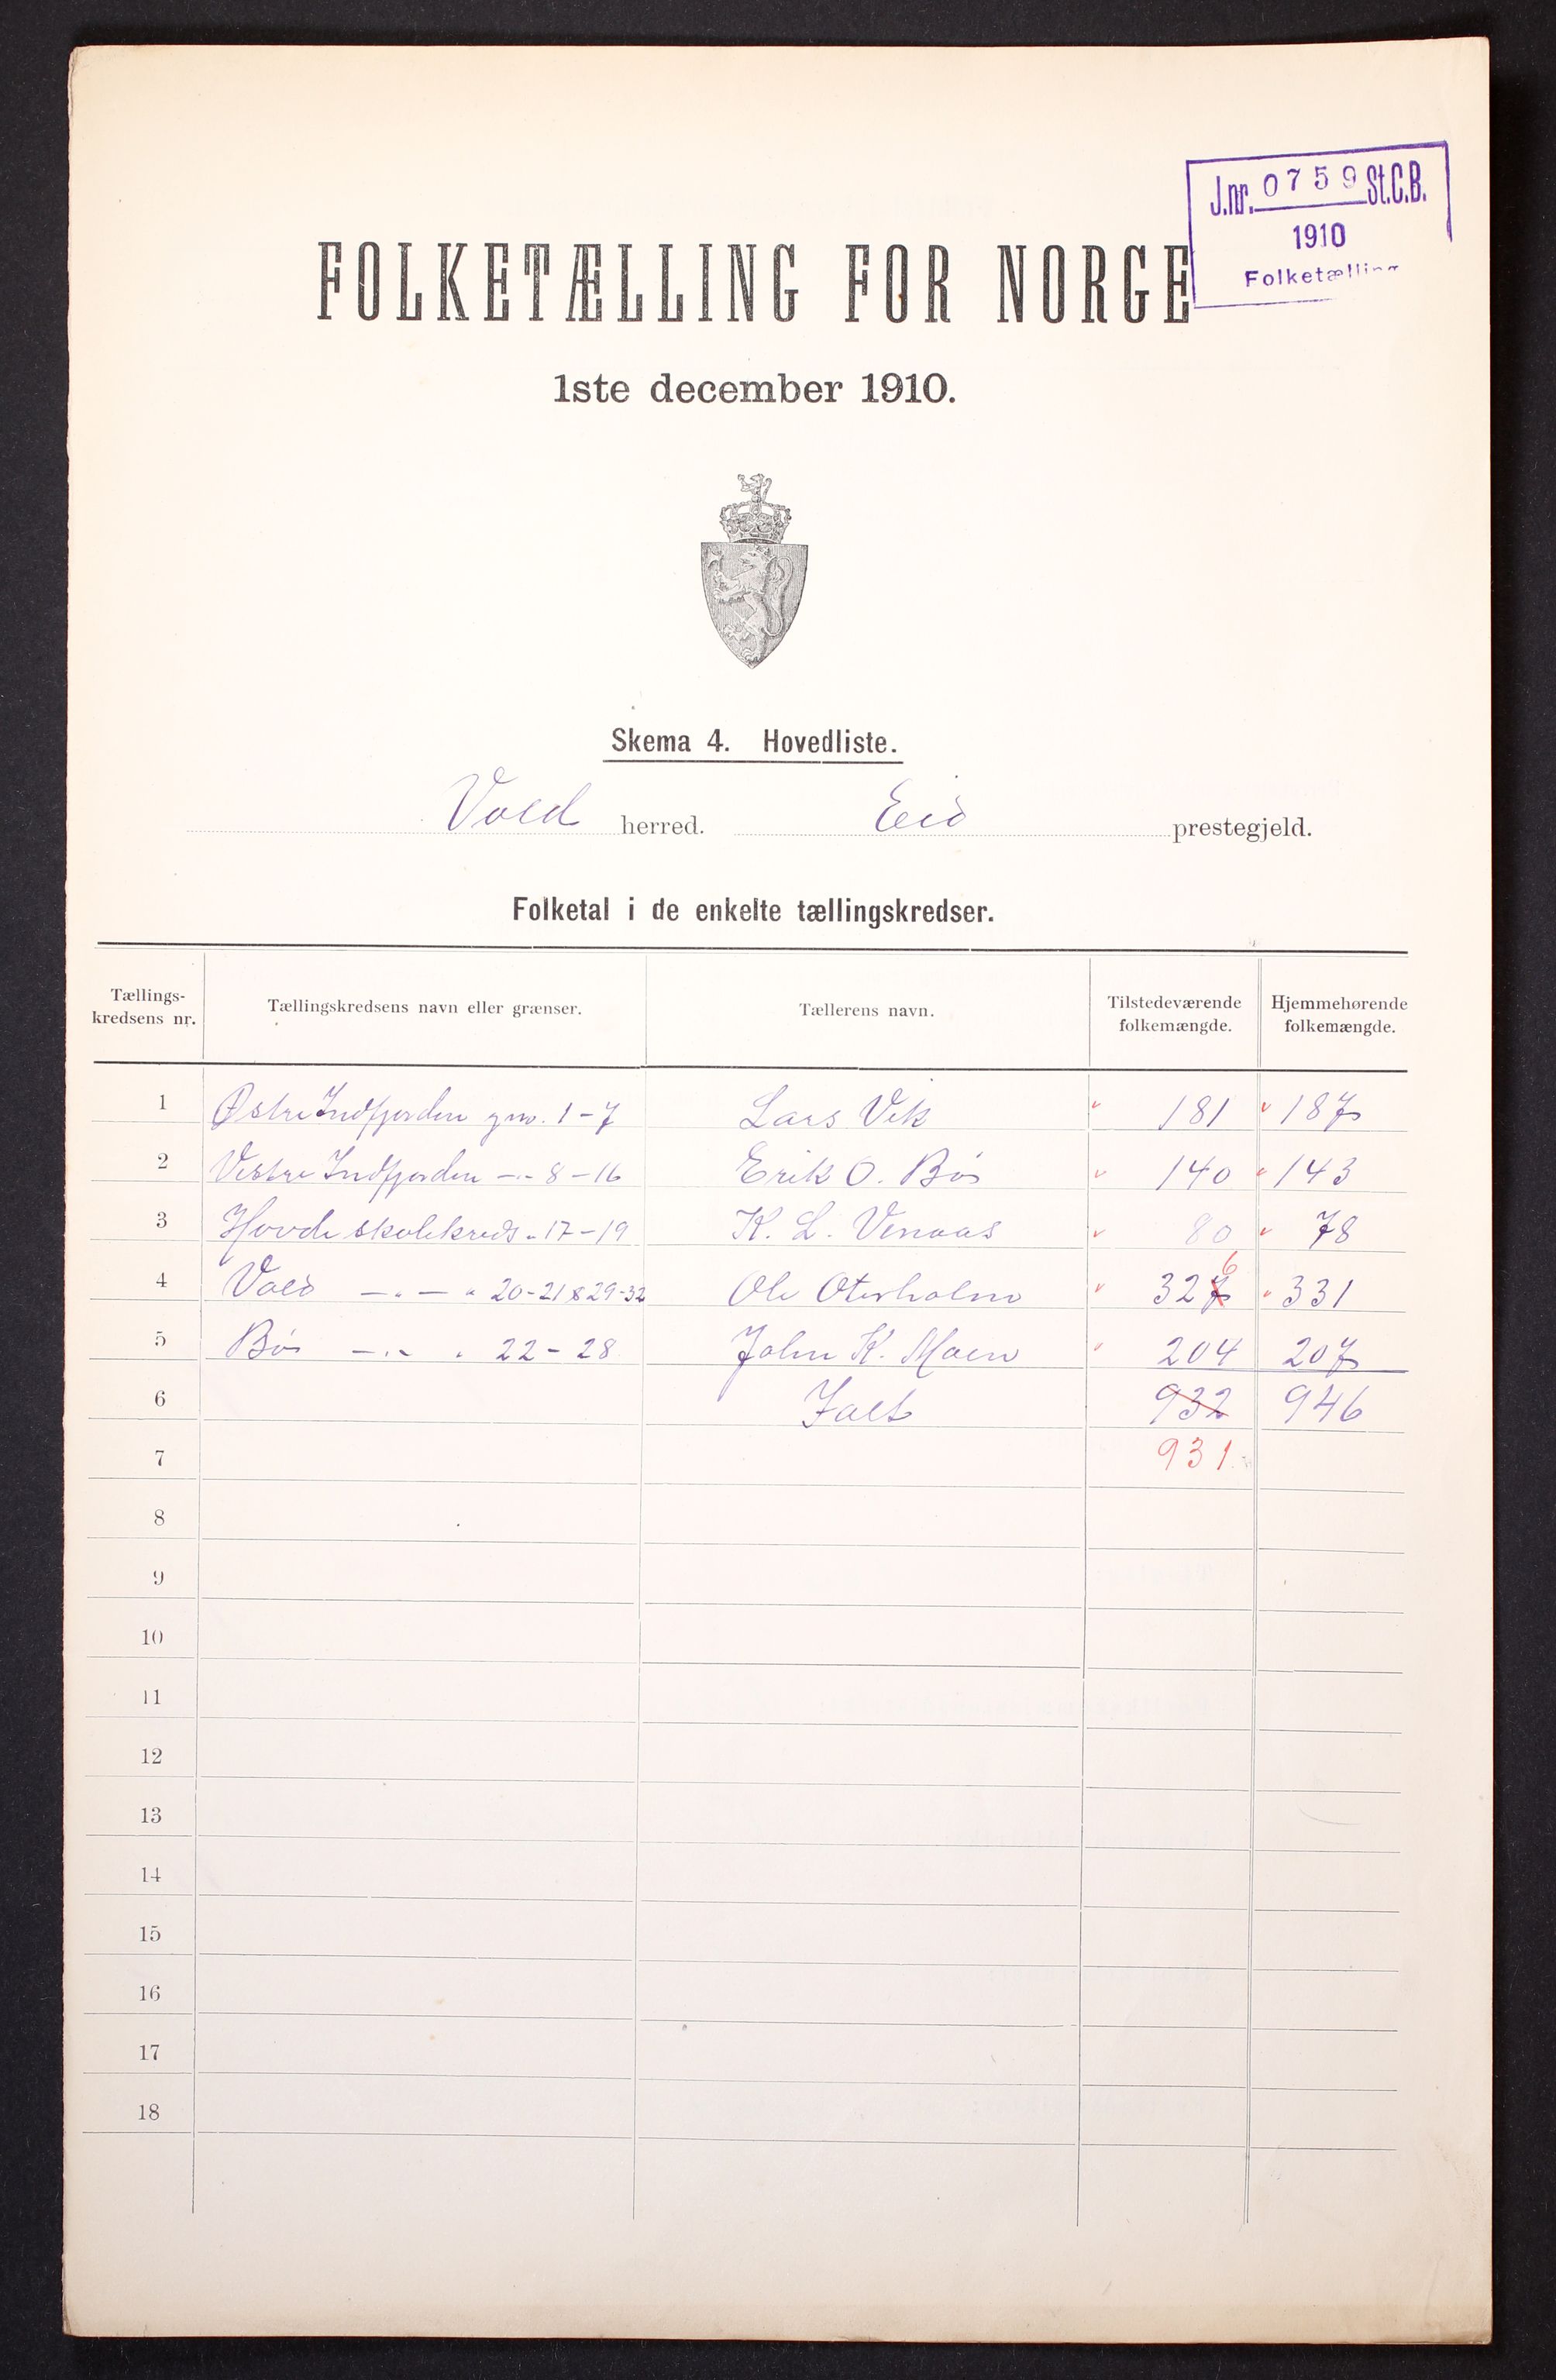 J.nr. 0759 St.C.B.
1910
Folketælling
FOLKETÆLLING FOR NORGE
1ste december 1910.
Skema 4. Hovedliste.
Vold herred. Eid prestegjeld.
Folketal i de enkelte tællingskredser.
Tællings-kredsens nr. Tællingskredsens navn eller grænser. Tællerens navn. Tilstedeværende folkemængde. Hjemmehørende folkemængde.
1 Østre Indfjorden gno. 1-7 Lars Vik 181 187
2 Vestre Indfjorden -"- 8-16 Erik O. Bøs 140 143
3 Hovde skolekreds " 17-19 K. L. Venaas 80 78
4 Vold -"- " 20-21 & 29-32 Ole Oterholm 327 6 331
5 Bøs -"- " 22-28 John K. Moen 204 207
6 Ialt 932 946
7 931
8
9
10
11
12
13
14
15
16
17
18